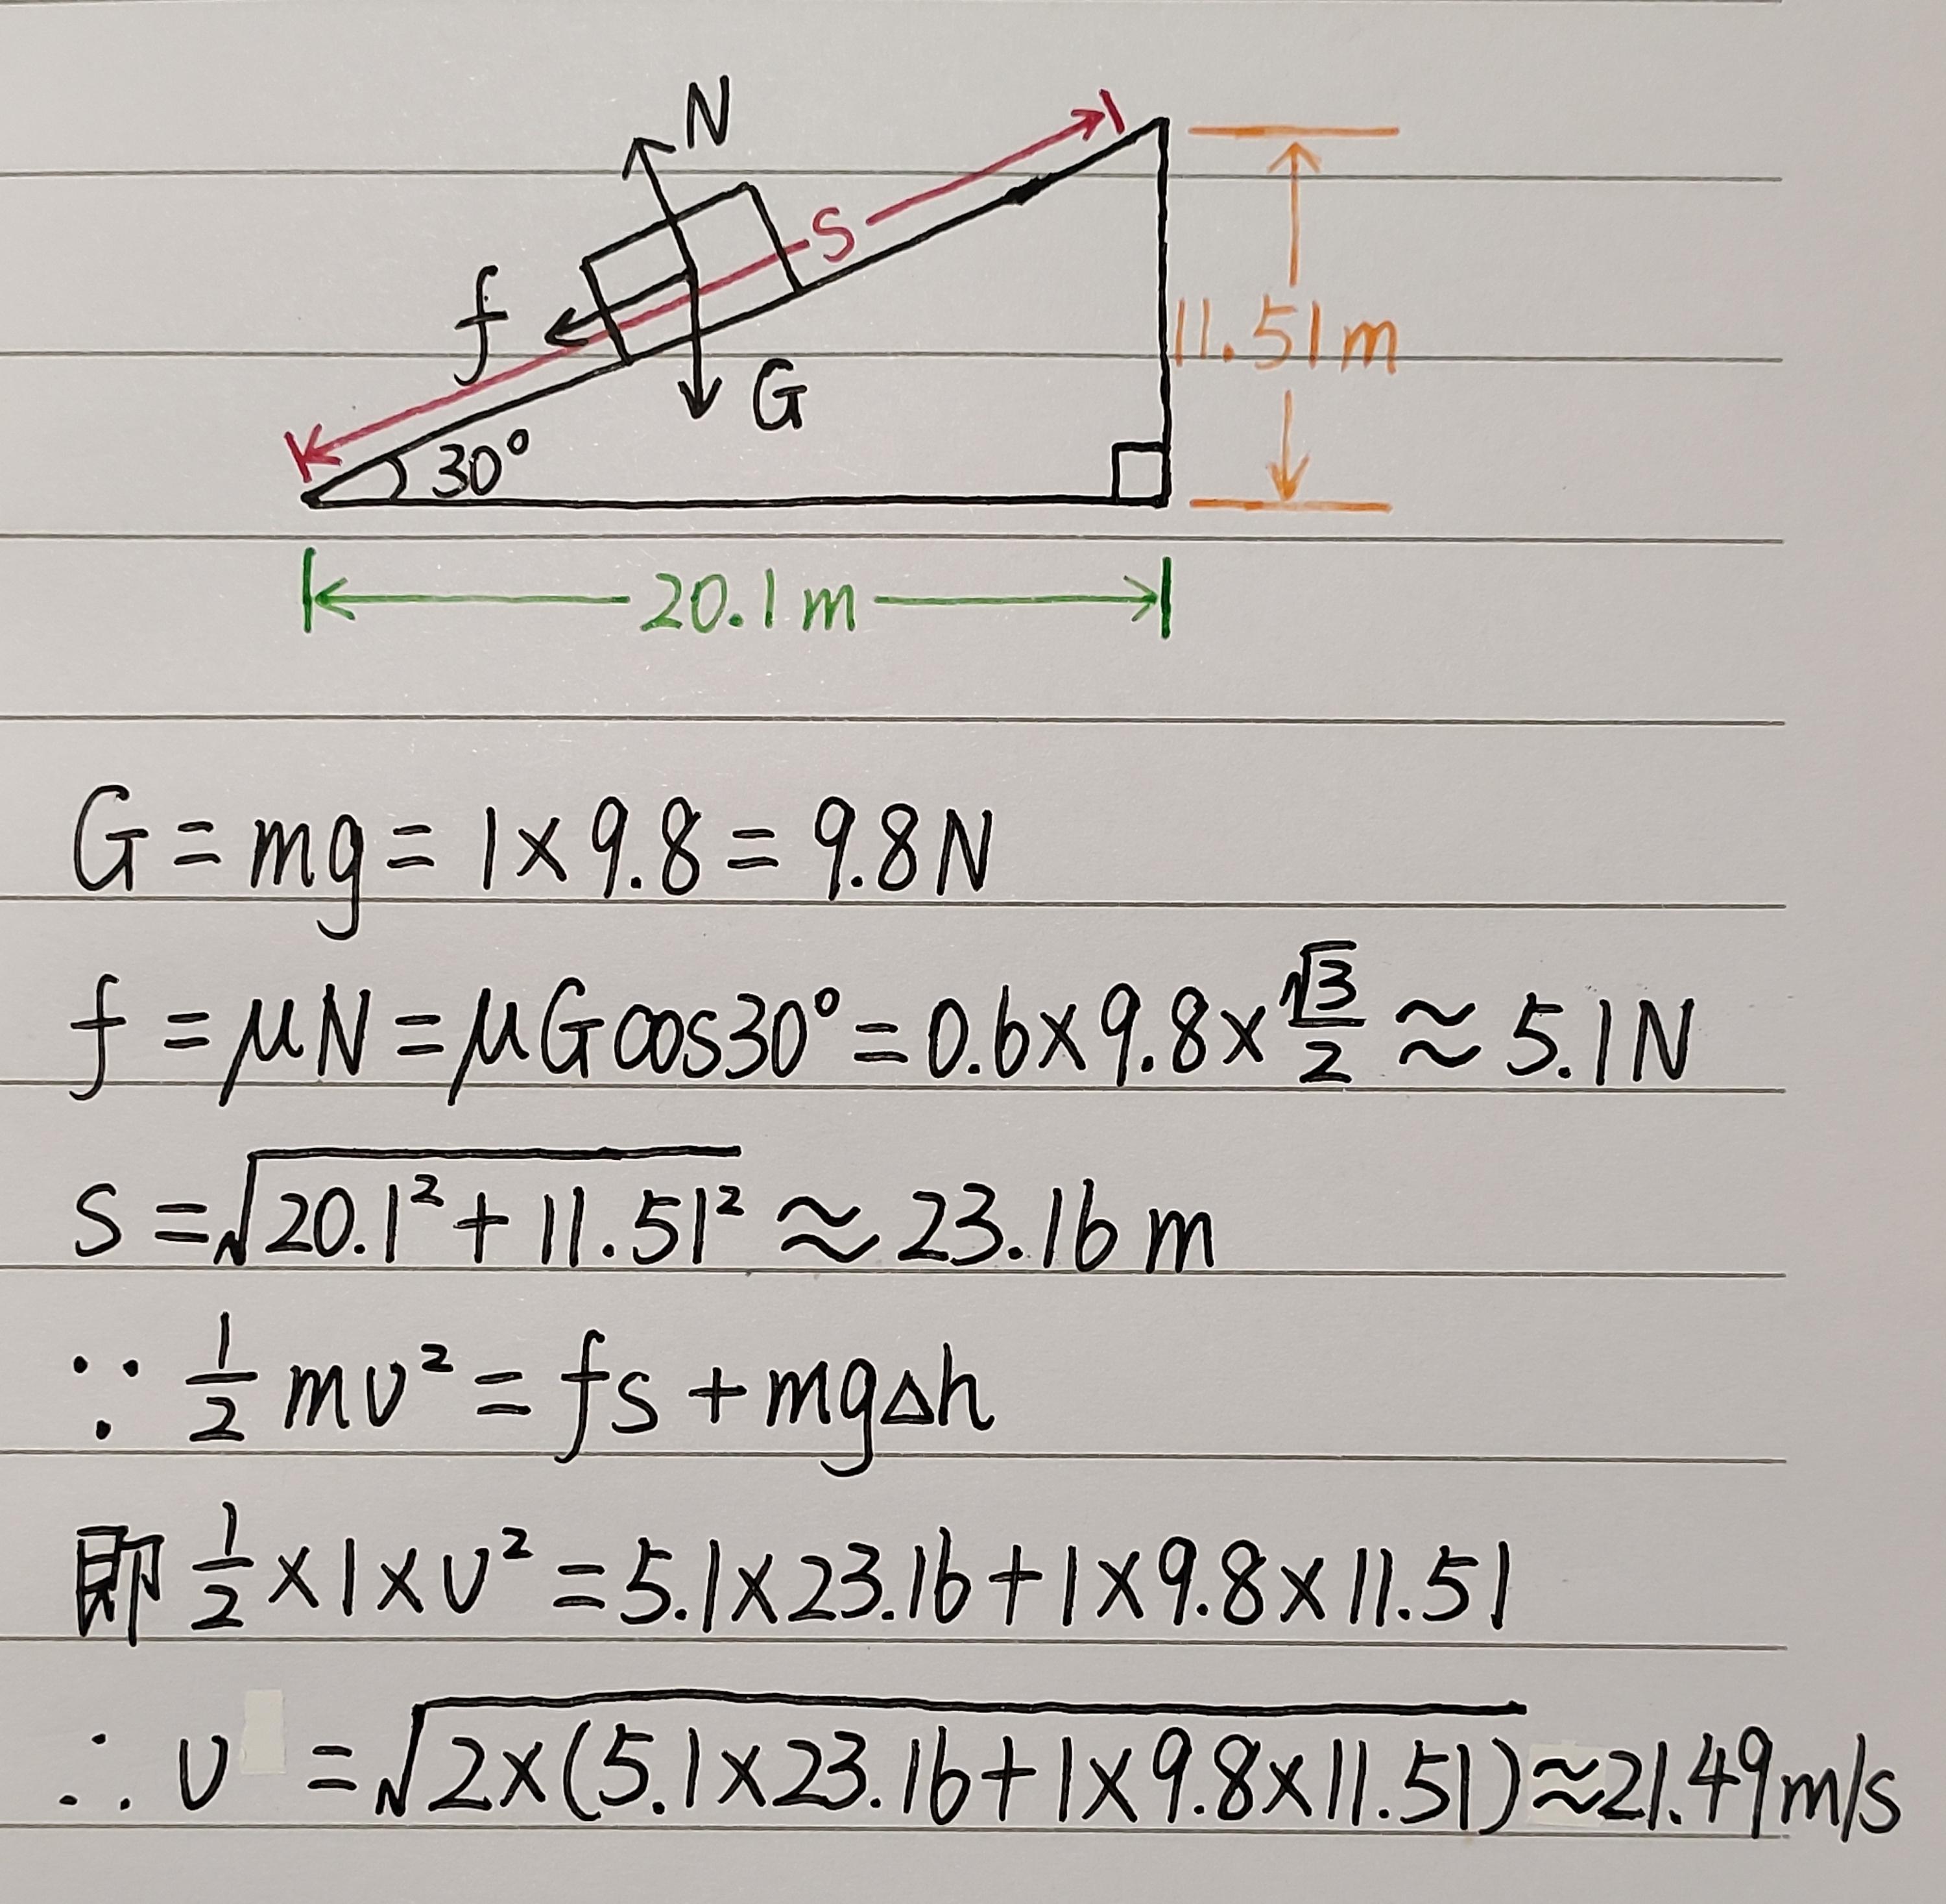 N
S
f
11.51m
G
30°
20.1m
G=mg=1×9.8=9.8N
f=μN=μGcos30°=0.6×9.8×√3/2≈5.1N
S=√(20.1²+11.51²)≈23.16m
∵ 1/2 mv²=fs+mg△h
即 1/2×1×v²=5.1×23.16+1×9.8×11.51
∴ v =√(2×(5.1×23.16+1×9.8×11.51))≈21.49m/s